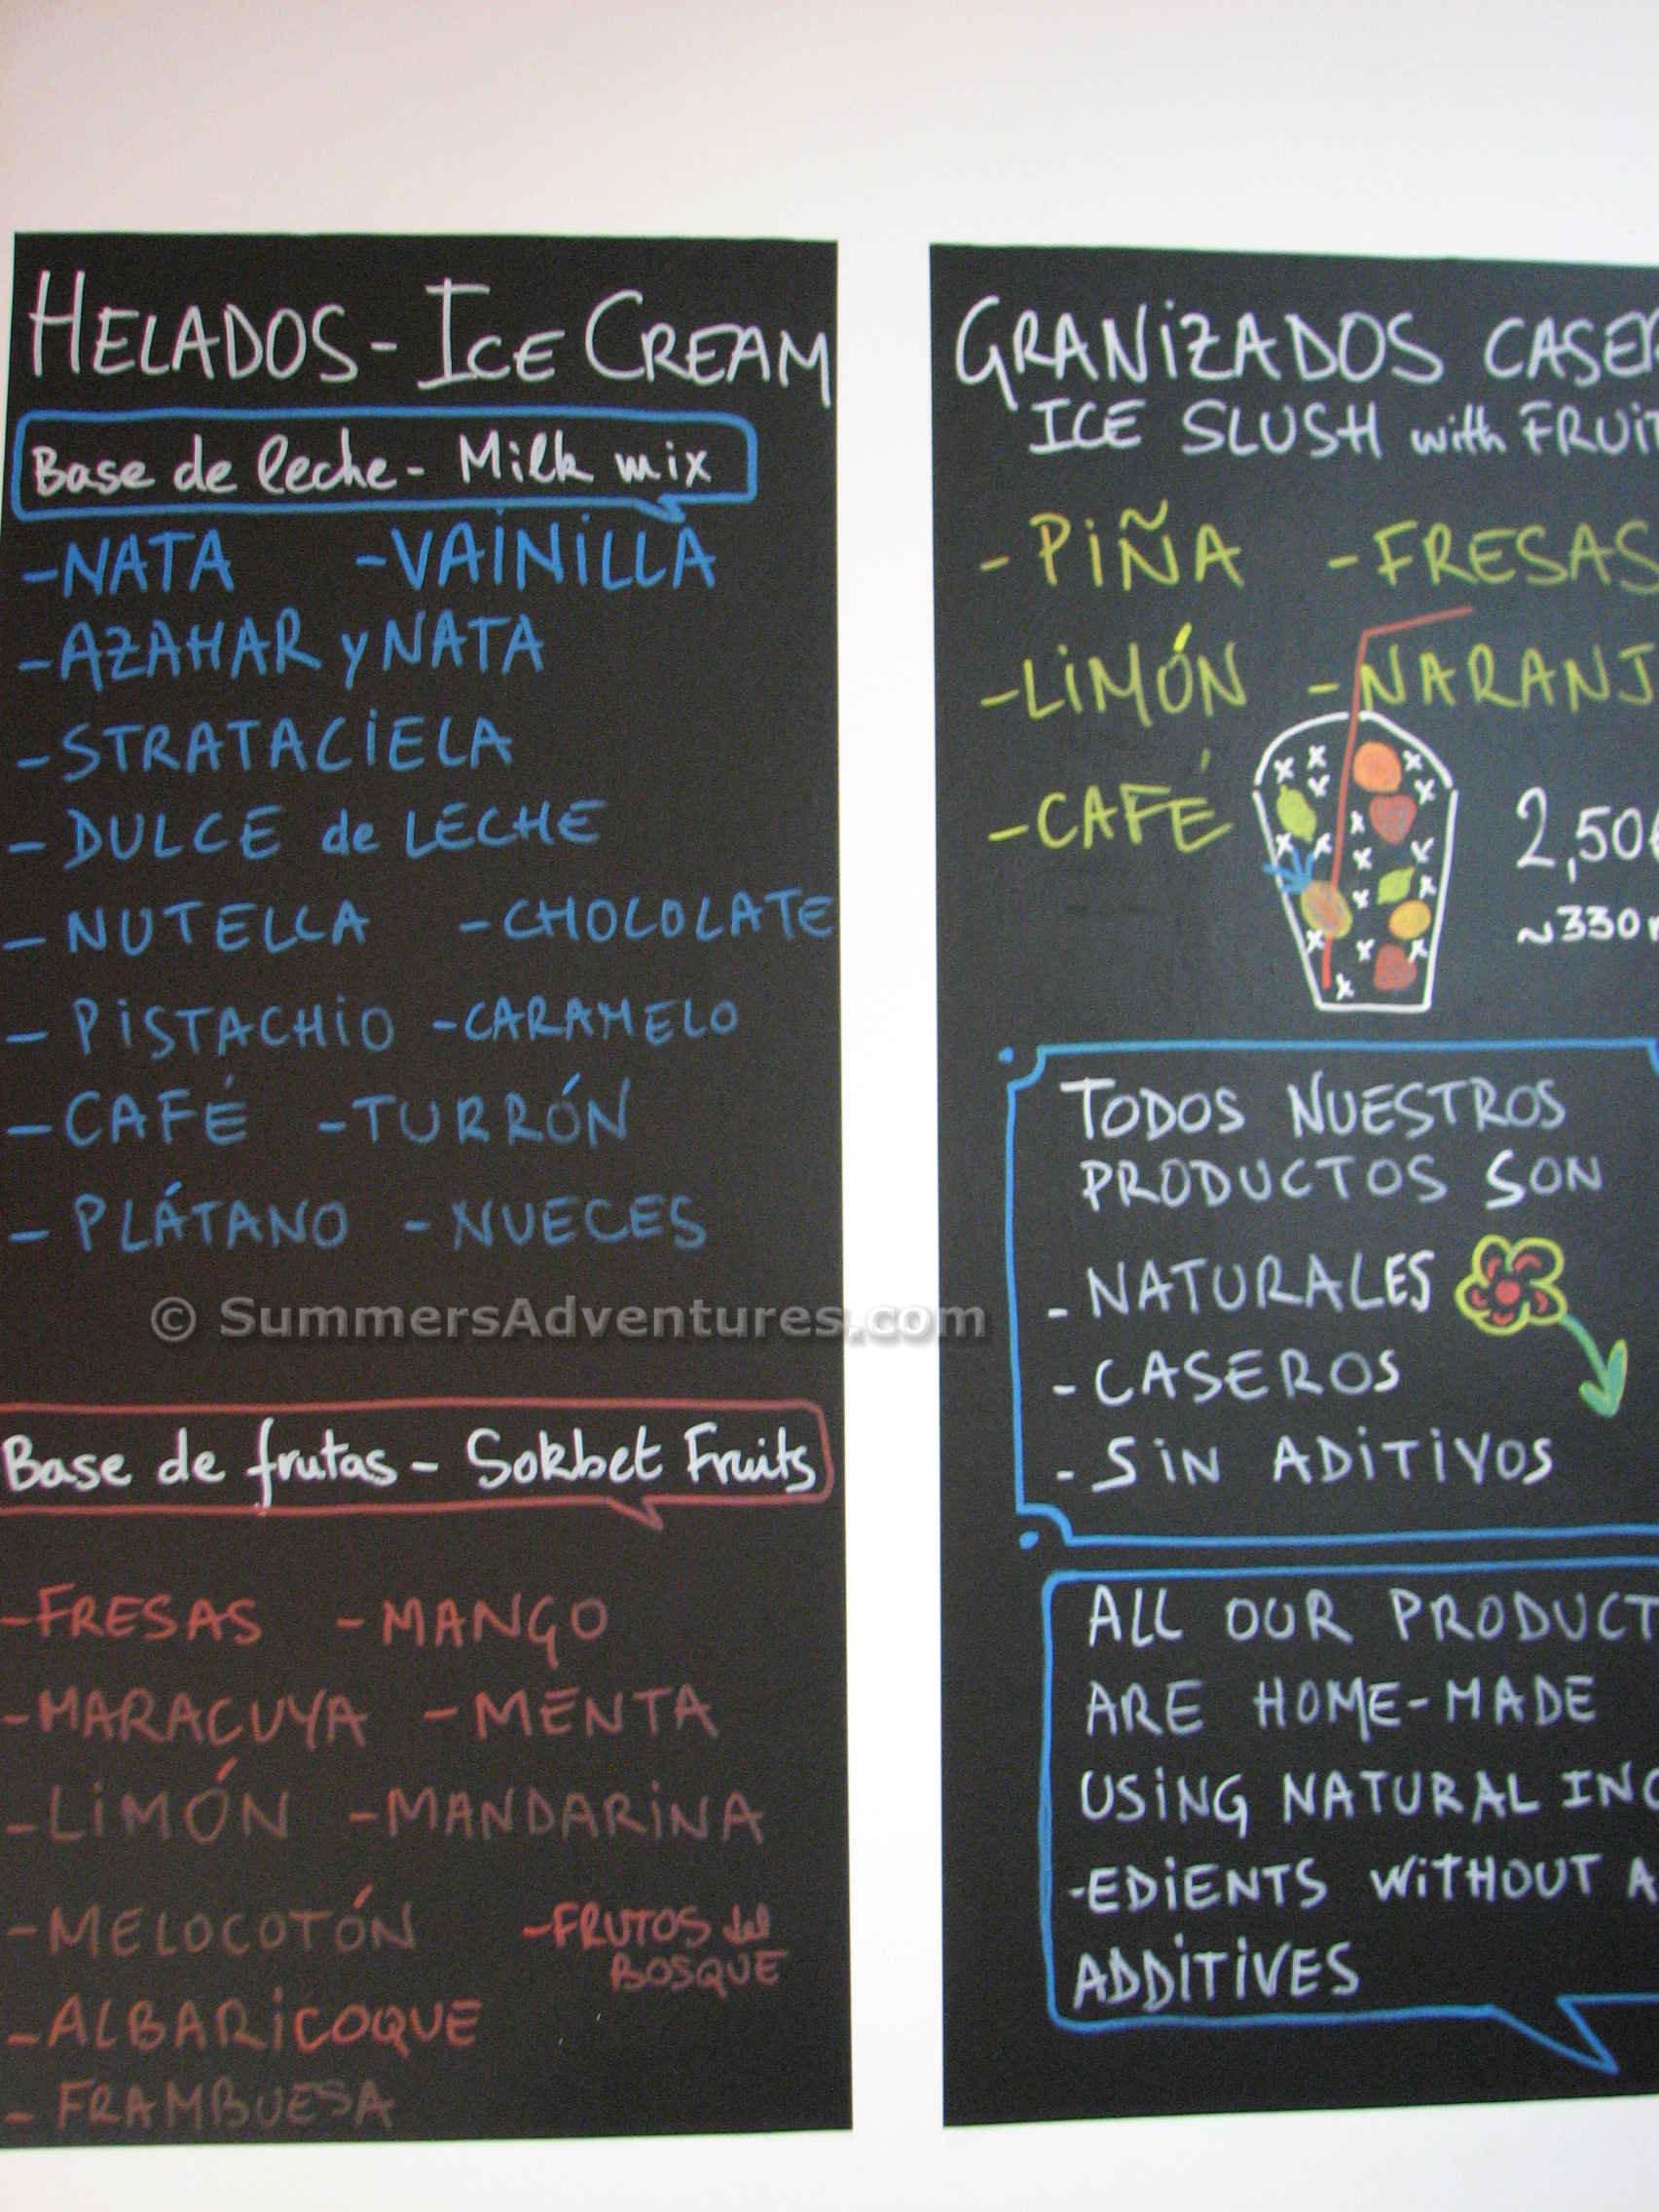 HELADOS - ICE CREAM
Base de leche - Milk mix
-NATA -VAINILLA
-AZAHAR y NATA
-STRATACIELA
-DULCE de LECHE
-NUTELLA -CHOCOLATE
-PISTACHIO -CARAMELO
-CAFÉ -TURRÓN
-PLÁTANO -NUECES
© SummersAdventures.com
Base de frutas - Sokbet Fruits
-FRESAS -MANGO
-MARACUYA -MENTA
-LIMÓN -MANDARINA
-MELOCOTÓN -FRUTOS del
BOSQUE
-ALBARICOQUE
-FRAMBUESA
GRANIZADOS CASER
ICE SLUSH with FRUIT
-PIÑA -FRESAS
-LIMÓN -NARANJ
-CAFÉ
2,50€
~330
TODOS NUESTROS
PRODUCTOS SON
-NATURALES
-CASEROS
-SIN ADITIVOS
ALL OUR PRODUCT
ARE HOME-MADE
USING NATURAL ING
-EDIENTS WITHOUT A
ADDITIVES